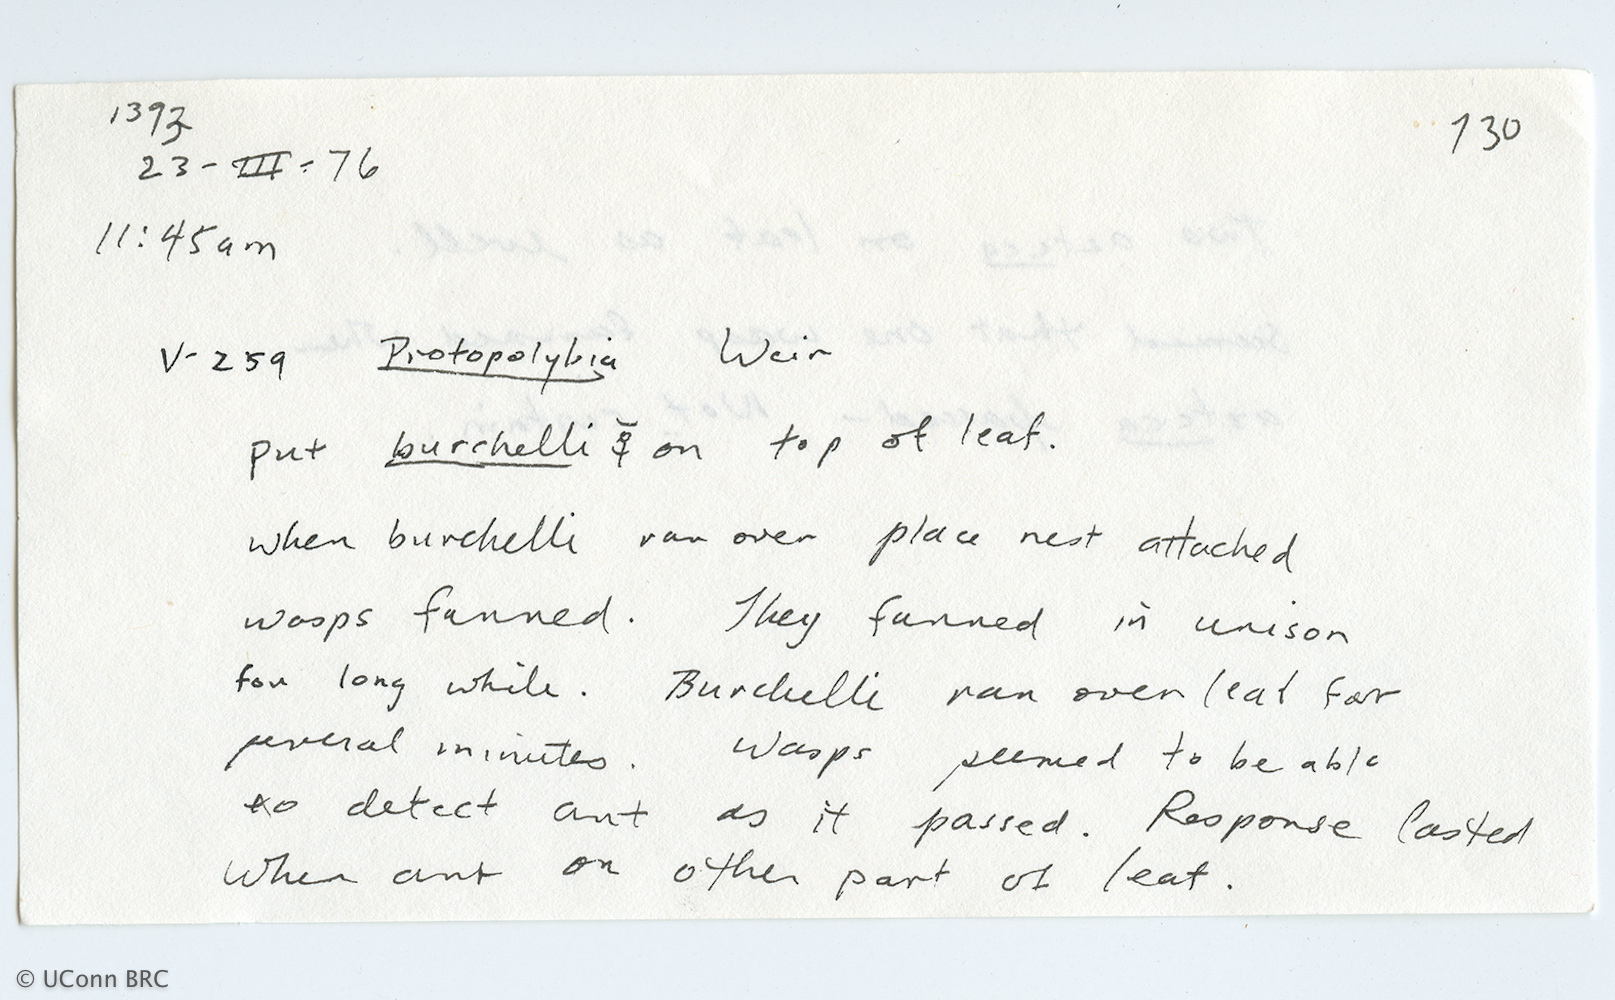 1393
130
23-III-76
11:45am
V-259 Protopolybia Weir
put burchelli ☿ on top of leaf.
when burchelli ran over place nest attached
wasps fanned. They fanned in unison
for long while. Burchelli ran over leaf for
several minutes. Wasps seemed to be able
to detect ant as it passed. Response lasted
when ant on other part of leaf.
© UConn BRC